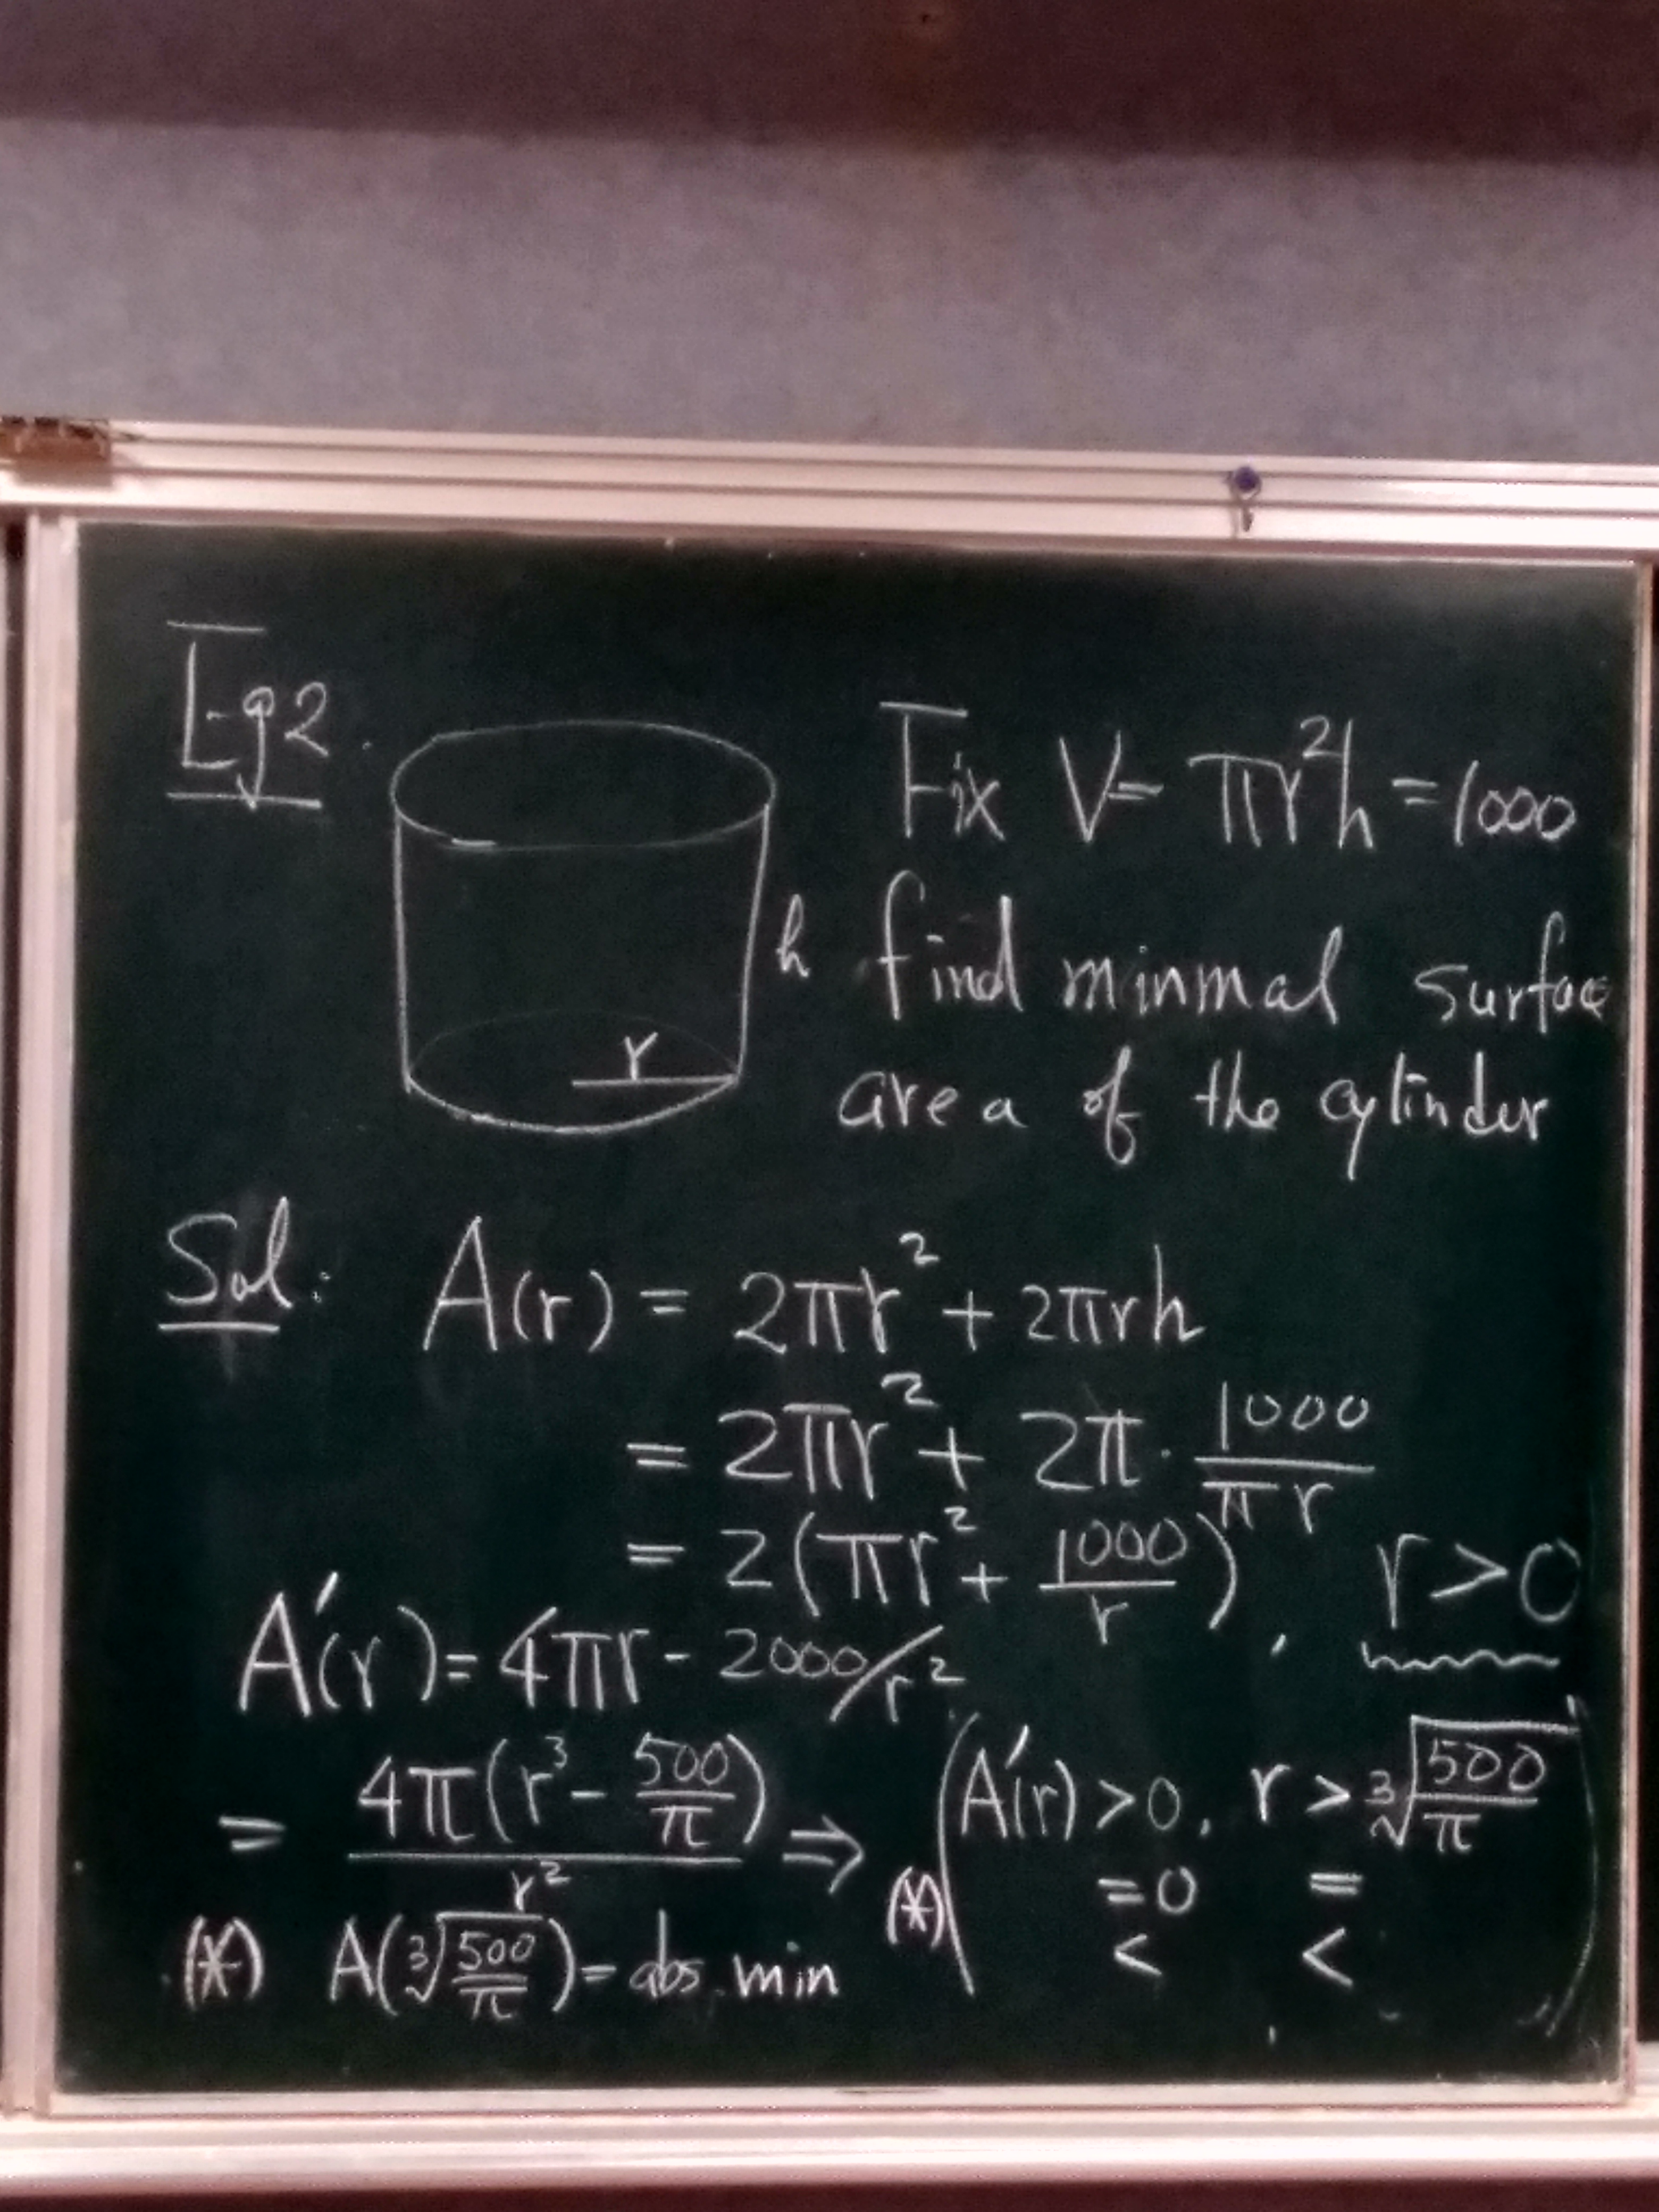 Eg2.
Fix V = πr²h = 1000
h find minmal surface
r
area of the cylinder
Sol: A(r) = 2πr² + 2πrh
= 2πr² + 2π · 1000/πr
= 2(πr² + 1000/r), r > 0
A'(r) = 4πr - 2000/r²
= 4π(r³ - 500/π)/r² ⇒ (*) (A'(r) > 0, r > ∛(500/π)
= 0 =
< <)
(*) A(∛(500/π)) = abs. min